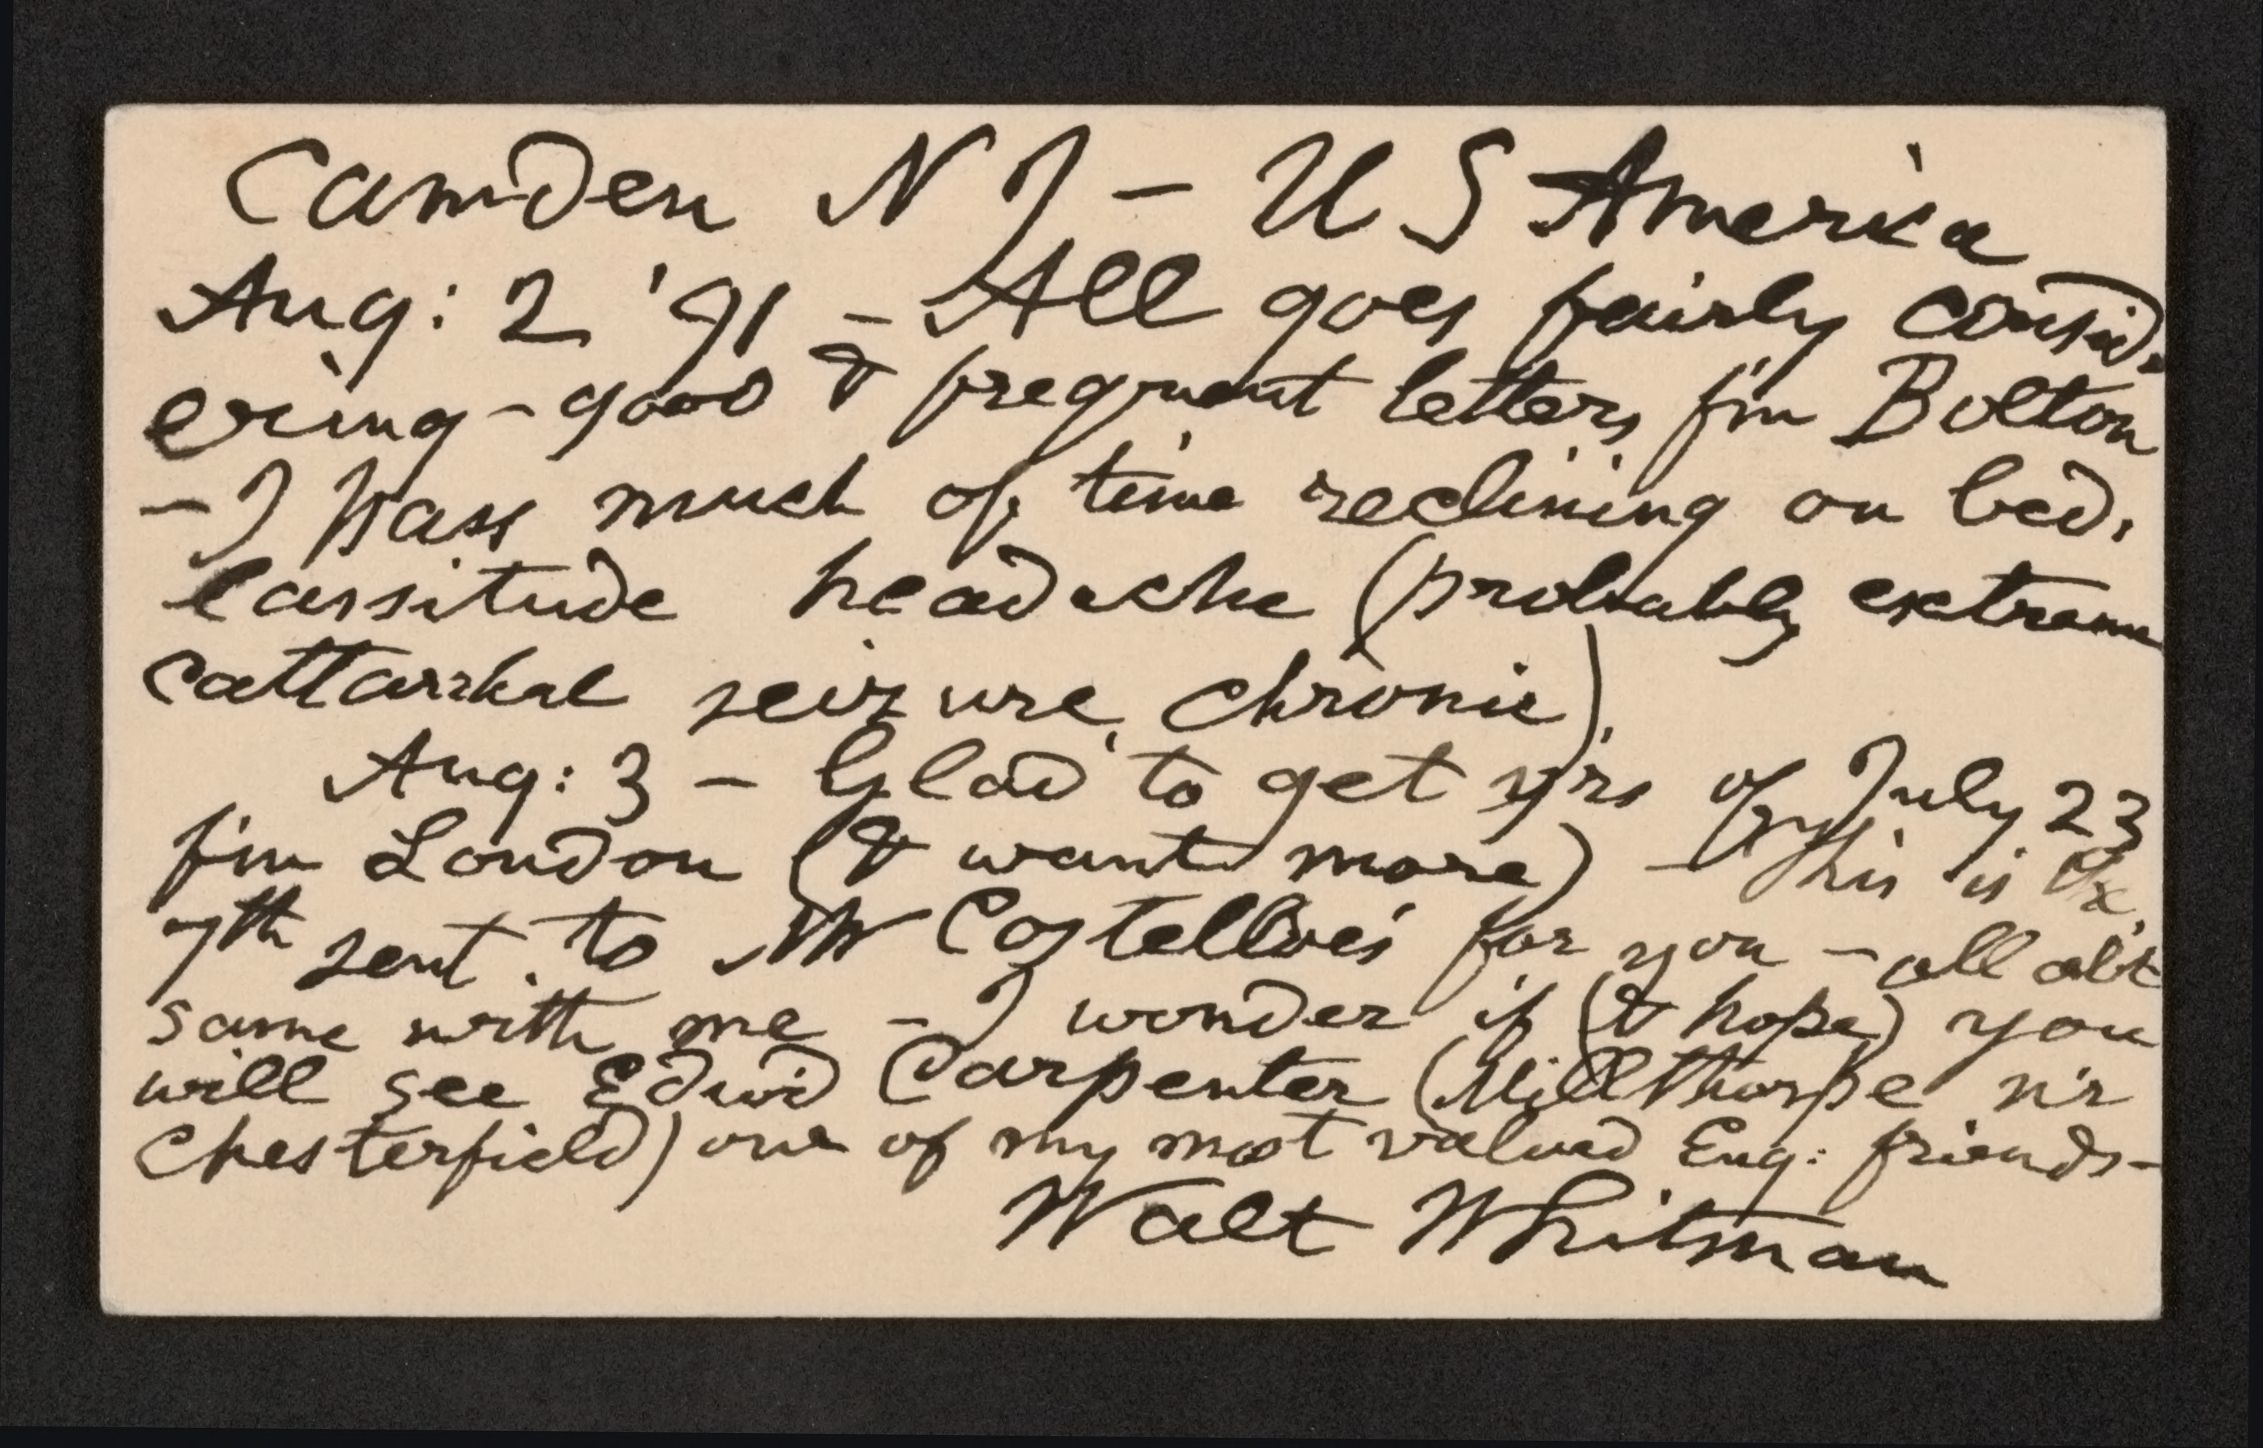 Camden N J – U S America
Aug: 2 '91 – All goes fairly consid-
ering – good & frequent letters f'm Bolton
– I pass much of time reclining on bed,
lassitude headache (probably extreme
cattarrhal seizure, chronic).
Aug: 3 – Glad to get y'rs of July 23
f'm London (& want more) – This is the
7th sent to Mr Costelloe's for you – all ab't
same with me – I wonder if (& hope) you
will see Edw'd Carpenter (Millthorpe n'r
Chesterfield) one of my most valued Eng: friends –
Walt Whitman